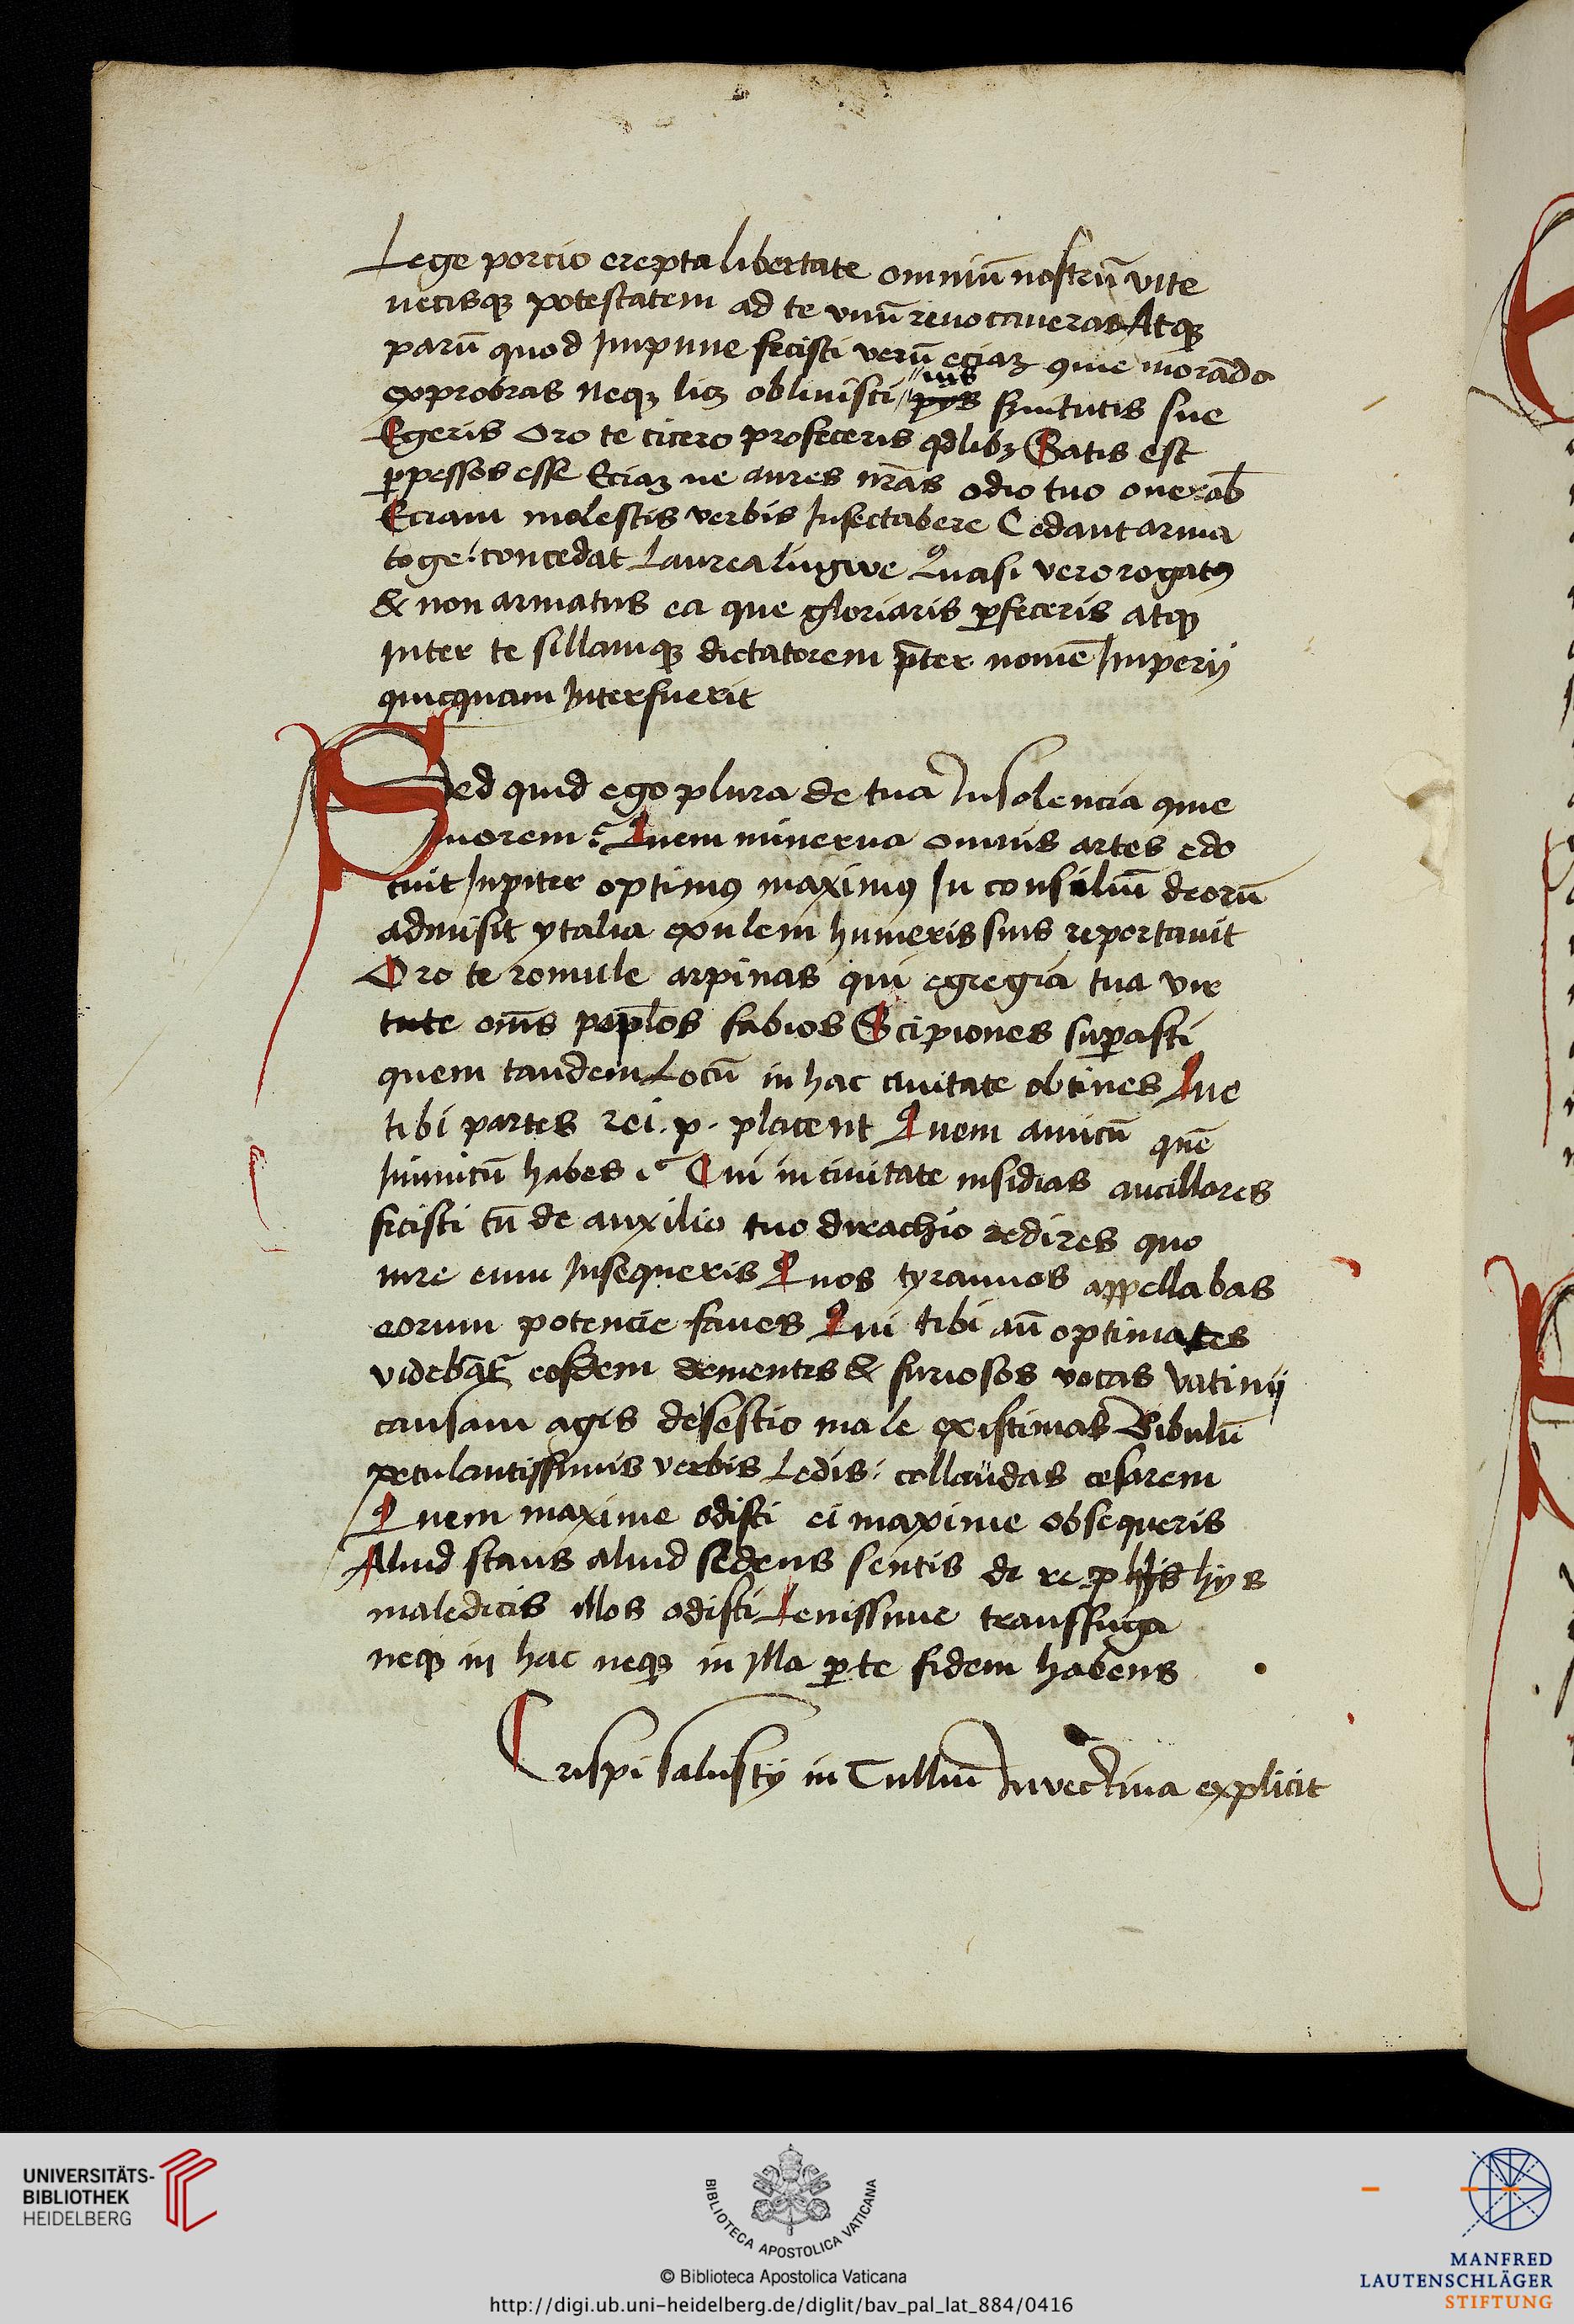 Lege porcio erepta libertate omniū nostrū vite
necisqꝫ potestatem ad te vnū reuocaueras Atqꝫ
parū quod Impune fecisti verū eciaꝫ ꝯme morādo
exprobras neqꝫ licꝫ obliuisci "ius" ẜuitutis sue
Egeris Oro te cicero profeceris qdlibꝫ Satis est
ꝑpessos esse Eciaꝫ ne aures nr̄as odio tuo onerab̄
Eciam molestis verbis Insectabere Cedant arma
toge / concedat Laurea lingwe Quasi vero rogatꝰ
& non armatus ea que gloriaris ꝑfeceris atqꝫ
Inter te sillamqꝫ dictatorem p̄ter nomē Imperij
quicquam Interfuerit
Sed quid ego plura de tua Insolencia ꝯme
morem? Quem minerua omnis artes edo
cuit Iupiter optimꝰ maximꝰ In consiliū deorū
admisit ytalia exulem humeris suis reportauit
Oro te romule arpinas qui egregia tua vir
tute om̄s pop̄los fabios Scipiones suꝑasti
quem tandem Locū in hac ciuitate obtines Que
tibi partes rei . p . placent Quem amicū quē
Inimicū habes ? Cui in ciuitate insidias ancillares
ficisti cū de auxilio tuo dirachio redires quo
iure eum Insequeris Quos tyrannos appellabas
eorum potencie faues Qui tibi an̄ optimates
videbāt̄ eosdem dementes & furiosos vocas Vatinij
causam agis de sestio male existimas Bibulū
petulantissimis verbis Ledis / collaudas cesarem
Quem maxime odisti ei maxime obsequeris
Aliud stans aliud sedens sentis de re p his hys
maledicis illos odisti Leuissime transfuga
neqꝫ in hac neqꝫ in illa ꝑte fidem habens
Crispi salustij in Tulliū Inuectiua explicit
UNIVERSITÄTS-
BIBLIOTHEK
HEIDELBERG
BIBLIOTECA APOSTOLICA VATICANA
© Biblioteca Apostolica Vaticana
http://digi.ub.uni-heidelberg.de/diglit/bav_pal_lat_884/0416
MANFRED
LAUTENSCHLÄGER
STIFTUNG